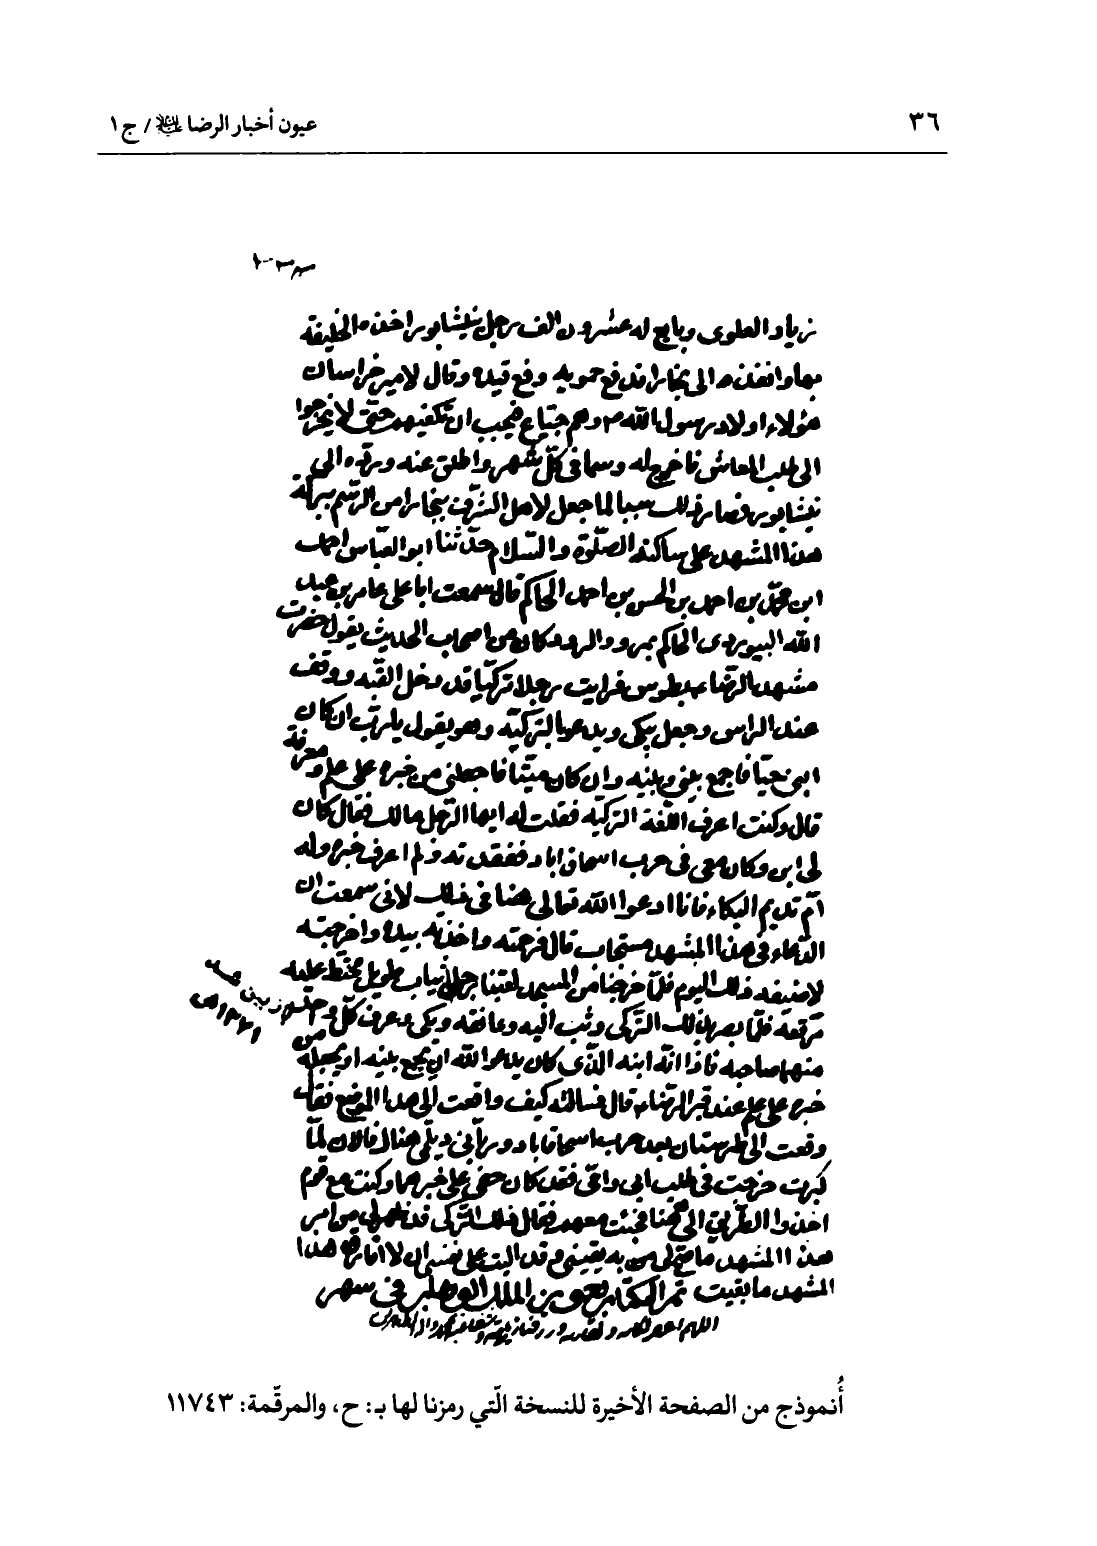 ٣٦
عيون أخبار الرضا / ج١
زياد العلوى وبايع له عشرون الف رجل بنيشابور اخذه الخليفة
بها وانفذه الى بخارا فدفع حمويه ورفع قيده وقال لامير خراسان
هؤلاء اولاد رسول الله ص وهم جياع فيجب ان تكفيهم حتى لا يخرجوا
الى طلب المعاش فاخرج له رسما في كل شهر واطلق عنه ورده الى
نيشابور فصار ذلك سببا لما جعل لاهل الشرف ببخارا من الرسم ببركة
هذا المشهد على ساكنه الصلوة والسلام حدثنا ابو العباس احمد
ابن محمد بن احمد بن الحسن بن احمد الحاكم قال سمعت ابا على عامر بن عبد
الله البيوردى الحاكم بمرو الرود وكان من اصحاب الحديث يقول حضرت
مشهد الرضا ع بطوس فرايت رجلا تركيا قد دخل القبه ووقف
عند الراس وجعل يبكى ويدعو بالتركية وهو يقول يا رب ان كان
ابنى حيا فاجمع بينى وبينه وان كان ميتا فاجعلنى من خبره على علم ومعرفة
قال وكنت اعرف اللغة التركية فقلت له ايها الرجل مالك فقال كان
لى ابن وكان معى فى حرب اسحاق اباد ففقدته ولم اعرف خبره وله
ام تديم البكاء فانا ادعوا الله تعالى هنا فى ذلك لانى سمعت ان
الدعاء فى هذا المشهد مستجاب قال فرحمته واخذته بيده واخرجته
لاضيفه ذلك اليوم فلما خرجنا من المسجد لقينا رجل شاب طويل مختط عليه
مرقعة فلما بصر بذلك التركى وثب اليه وعانقه وبكى وعرف كل واحد
منهما صاحبه فاذا انه ابنه الذى كان يدعوا الله ان يجمع بينه او يجعله من
خبره على علم عند قبر الرضا ع قال فسالته كيف وقعت الى هذا الموضع فقال
وقعت الى طبرستان بعد حرب اسحاقاباد وربانى ديلمى هناك فالان لما
كبرت خرجت فى طلب ابى وامى فقد كان خفى على خبرهما وكنت مع قوم
اخذوا الطريق الى هنا فجئت معهم فقال ذلك التركى قد ظهر لى من امر
هذا المشهد ما صح لى به يقينى وقد اليت على نفسى ان لا افارق هذا
المشهد ما بقيت تم الكتاب بعون الملك الوهاب فى شهر
أُنموذج من الصفحة الأخيرة للنسخة الّتي رمزنا لها بـ: ح، والمرقّمة: ١١٧٤٣